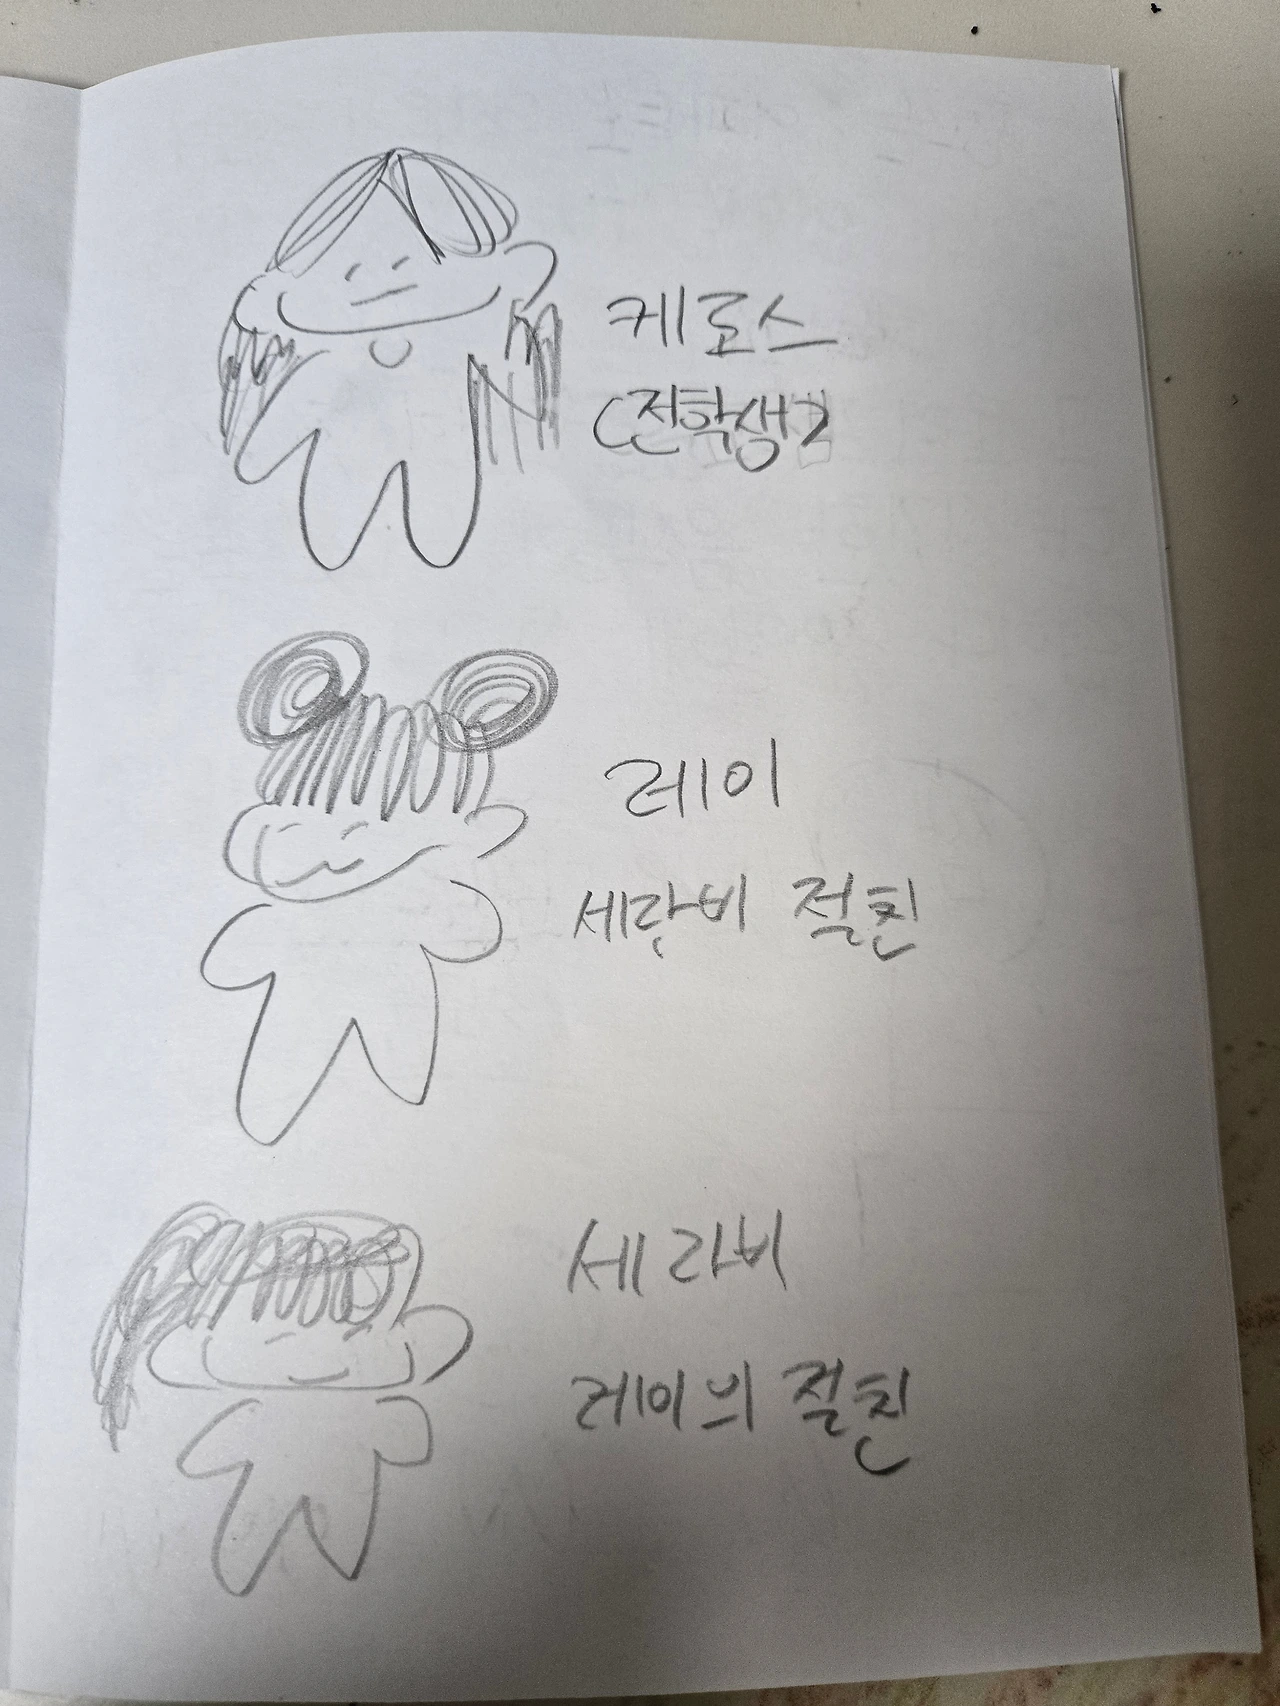 케로스
(전학생)
레이
세라비 절친
세라비
레이의 절친